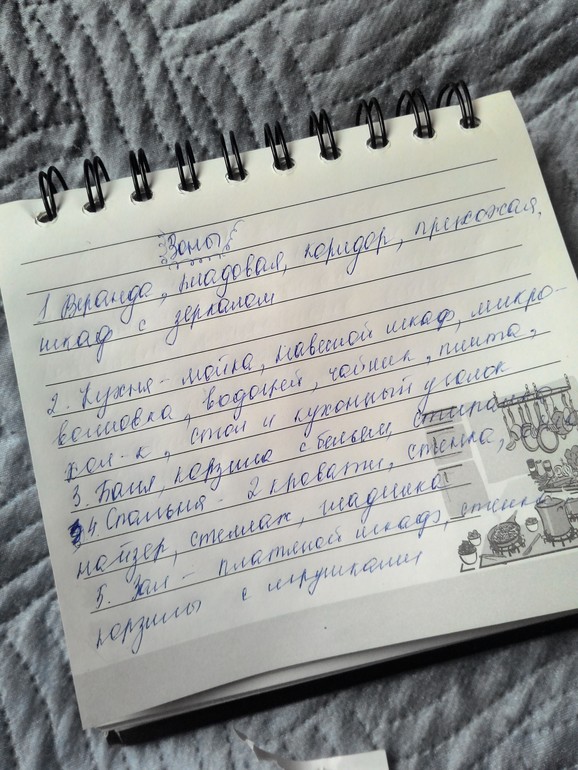 Зоны
1 Веранда, кладовая, коридор, прихожая,
шкаф с зеркалом
2. Кухня - мойка, навесной шкаф, микро-
волновка, водогрей, чайник, плита,
хол-к, стол и кухонный уголок
3. Баня, корзина с бельем,
4. Спальня - 2 кровати, стенка,
найзер, стеллаж, гладилка
5. Зал - платяной шкаф, стенка
корзины с игрушками